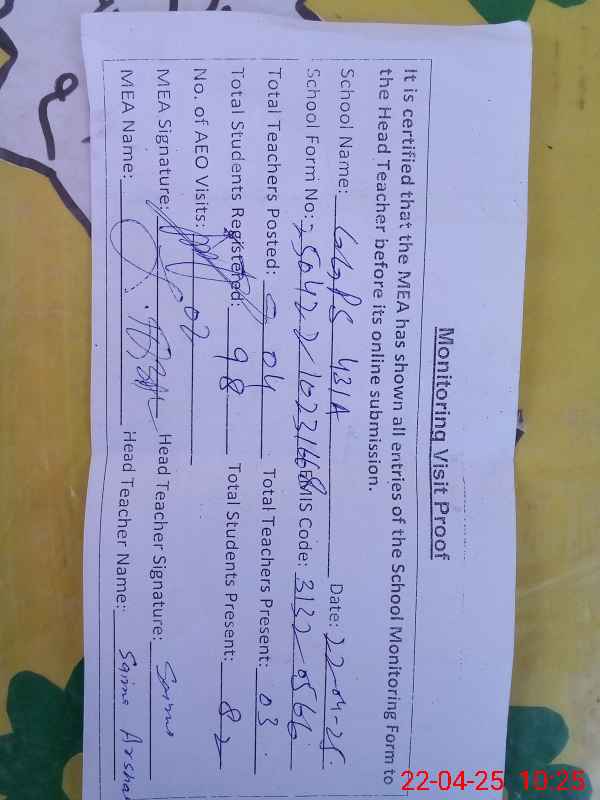 Monitoring Visit Proof
It is certified that the MEA has shown all entries of the School Monitoring Form to
the Head Teacher before its online submission.
School Name: GGPS 431A Date: 22-04-25
School Form No: 250422/1023166 EMIS Code: 31320566
Total Teachers Posted: 04 Total Teachers Present: 03
Total Students Registered: 98 Total Students Present: 82
No. of AEO Visits: 02
MEA Signature: Head Teacher Signature: Saima
MEA Name: Head Teacher Name: Saima Arshad
22-04-25 10:25